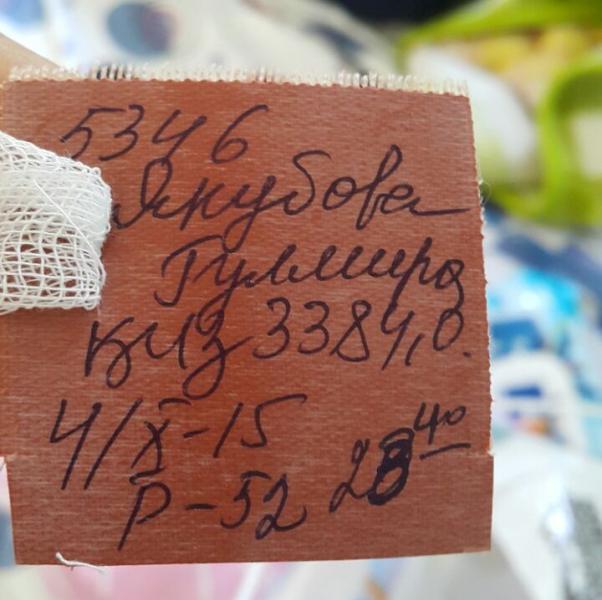 5346
Якубова
Гулмира
киз 3384,0.
4/X-15
23 40
P-52